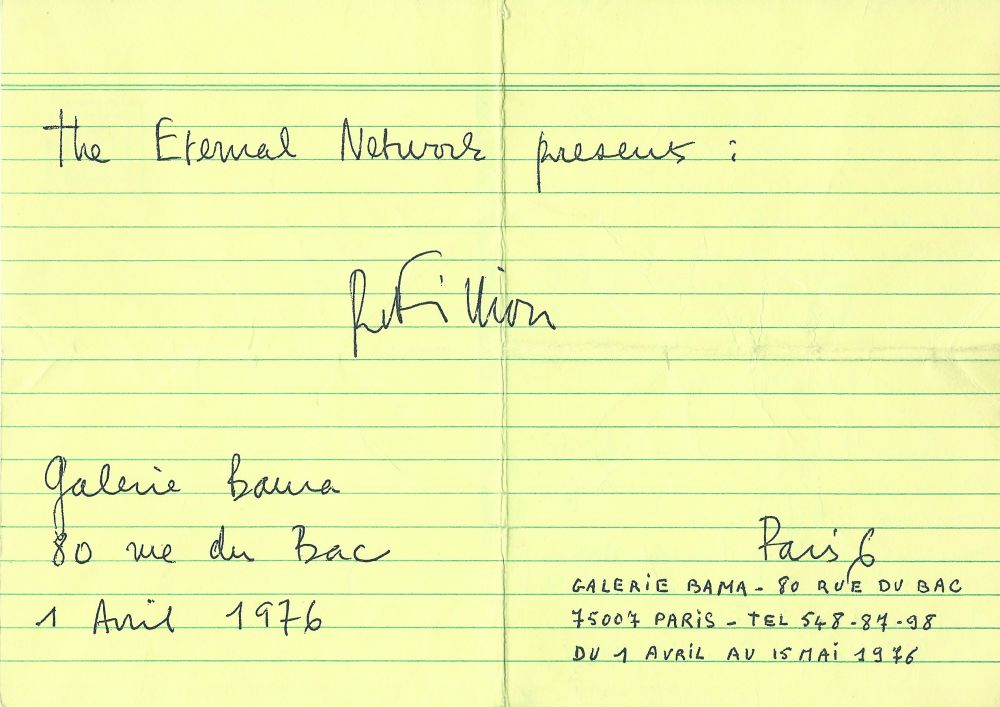 the Eternal Network presents :
Filliou
Galerie Bama
80 rue du Bac
1 Avril 1976
Paris 6
GALERIE BAMA - 80 RUE DU BAC
75007 PARIS - TEL 548-87-98
DU 1 AVRIL AU 15 MAI 1976